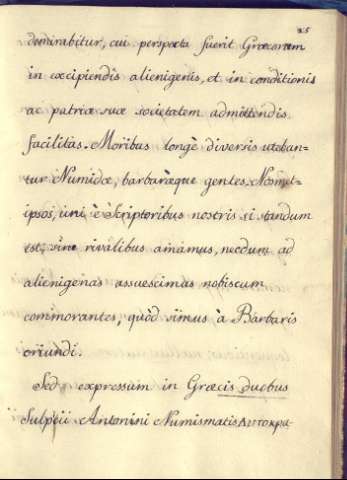 25
demirabitur, cui perspecta fuerit Græcorum
in excipiendis alienigenis, et in conditionis
ac patriæ suæ societatem admittendis
facilitas. Moribus longè diversis uteban=
tur Numidæ, barbaræque gentes. Nosmet=
ipsos, uni è Scriptoribus nostris si standum
est, sine rivalibus amamus, necdum ad
alienigenas assuescimus nobiscum
commorantes, quòd simus à Barbaris
oriundi.
Sed expressum in Græcis duobus
Sulpcii Antonini Numismatis ΑΥΤΟΚΡΑ